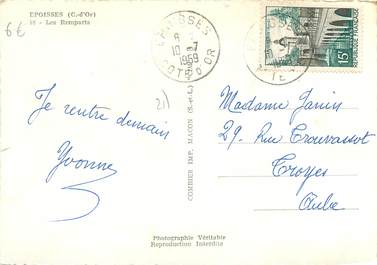 EPOISSES (C.-d'Or)
6€
18 - Les Remparts
EPOISSES
COTE D'OR
15F
REPUBLIQUE FRANÇAISE
Je rentre demain
Yvonne
21
COMBIER IMP. MACON (S.-et-L.)
Madame Janin
29 Rue Crouvassot
Troyes
Aube
Photographie Véritable
Reproduction Interdite